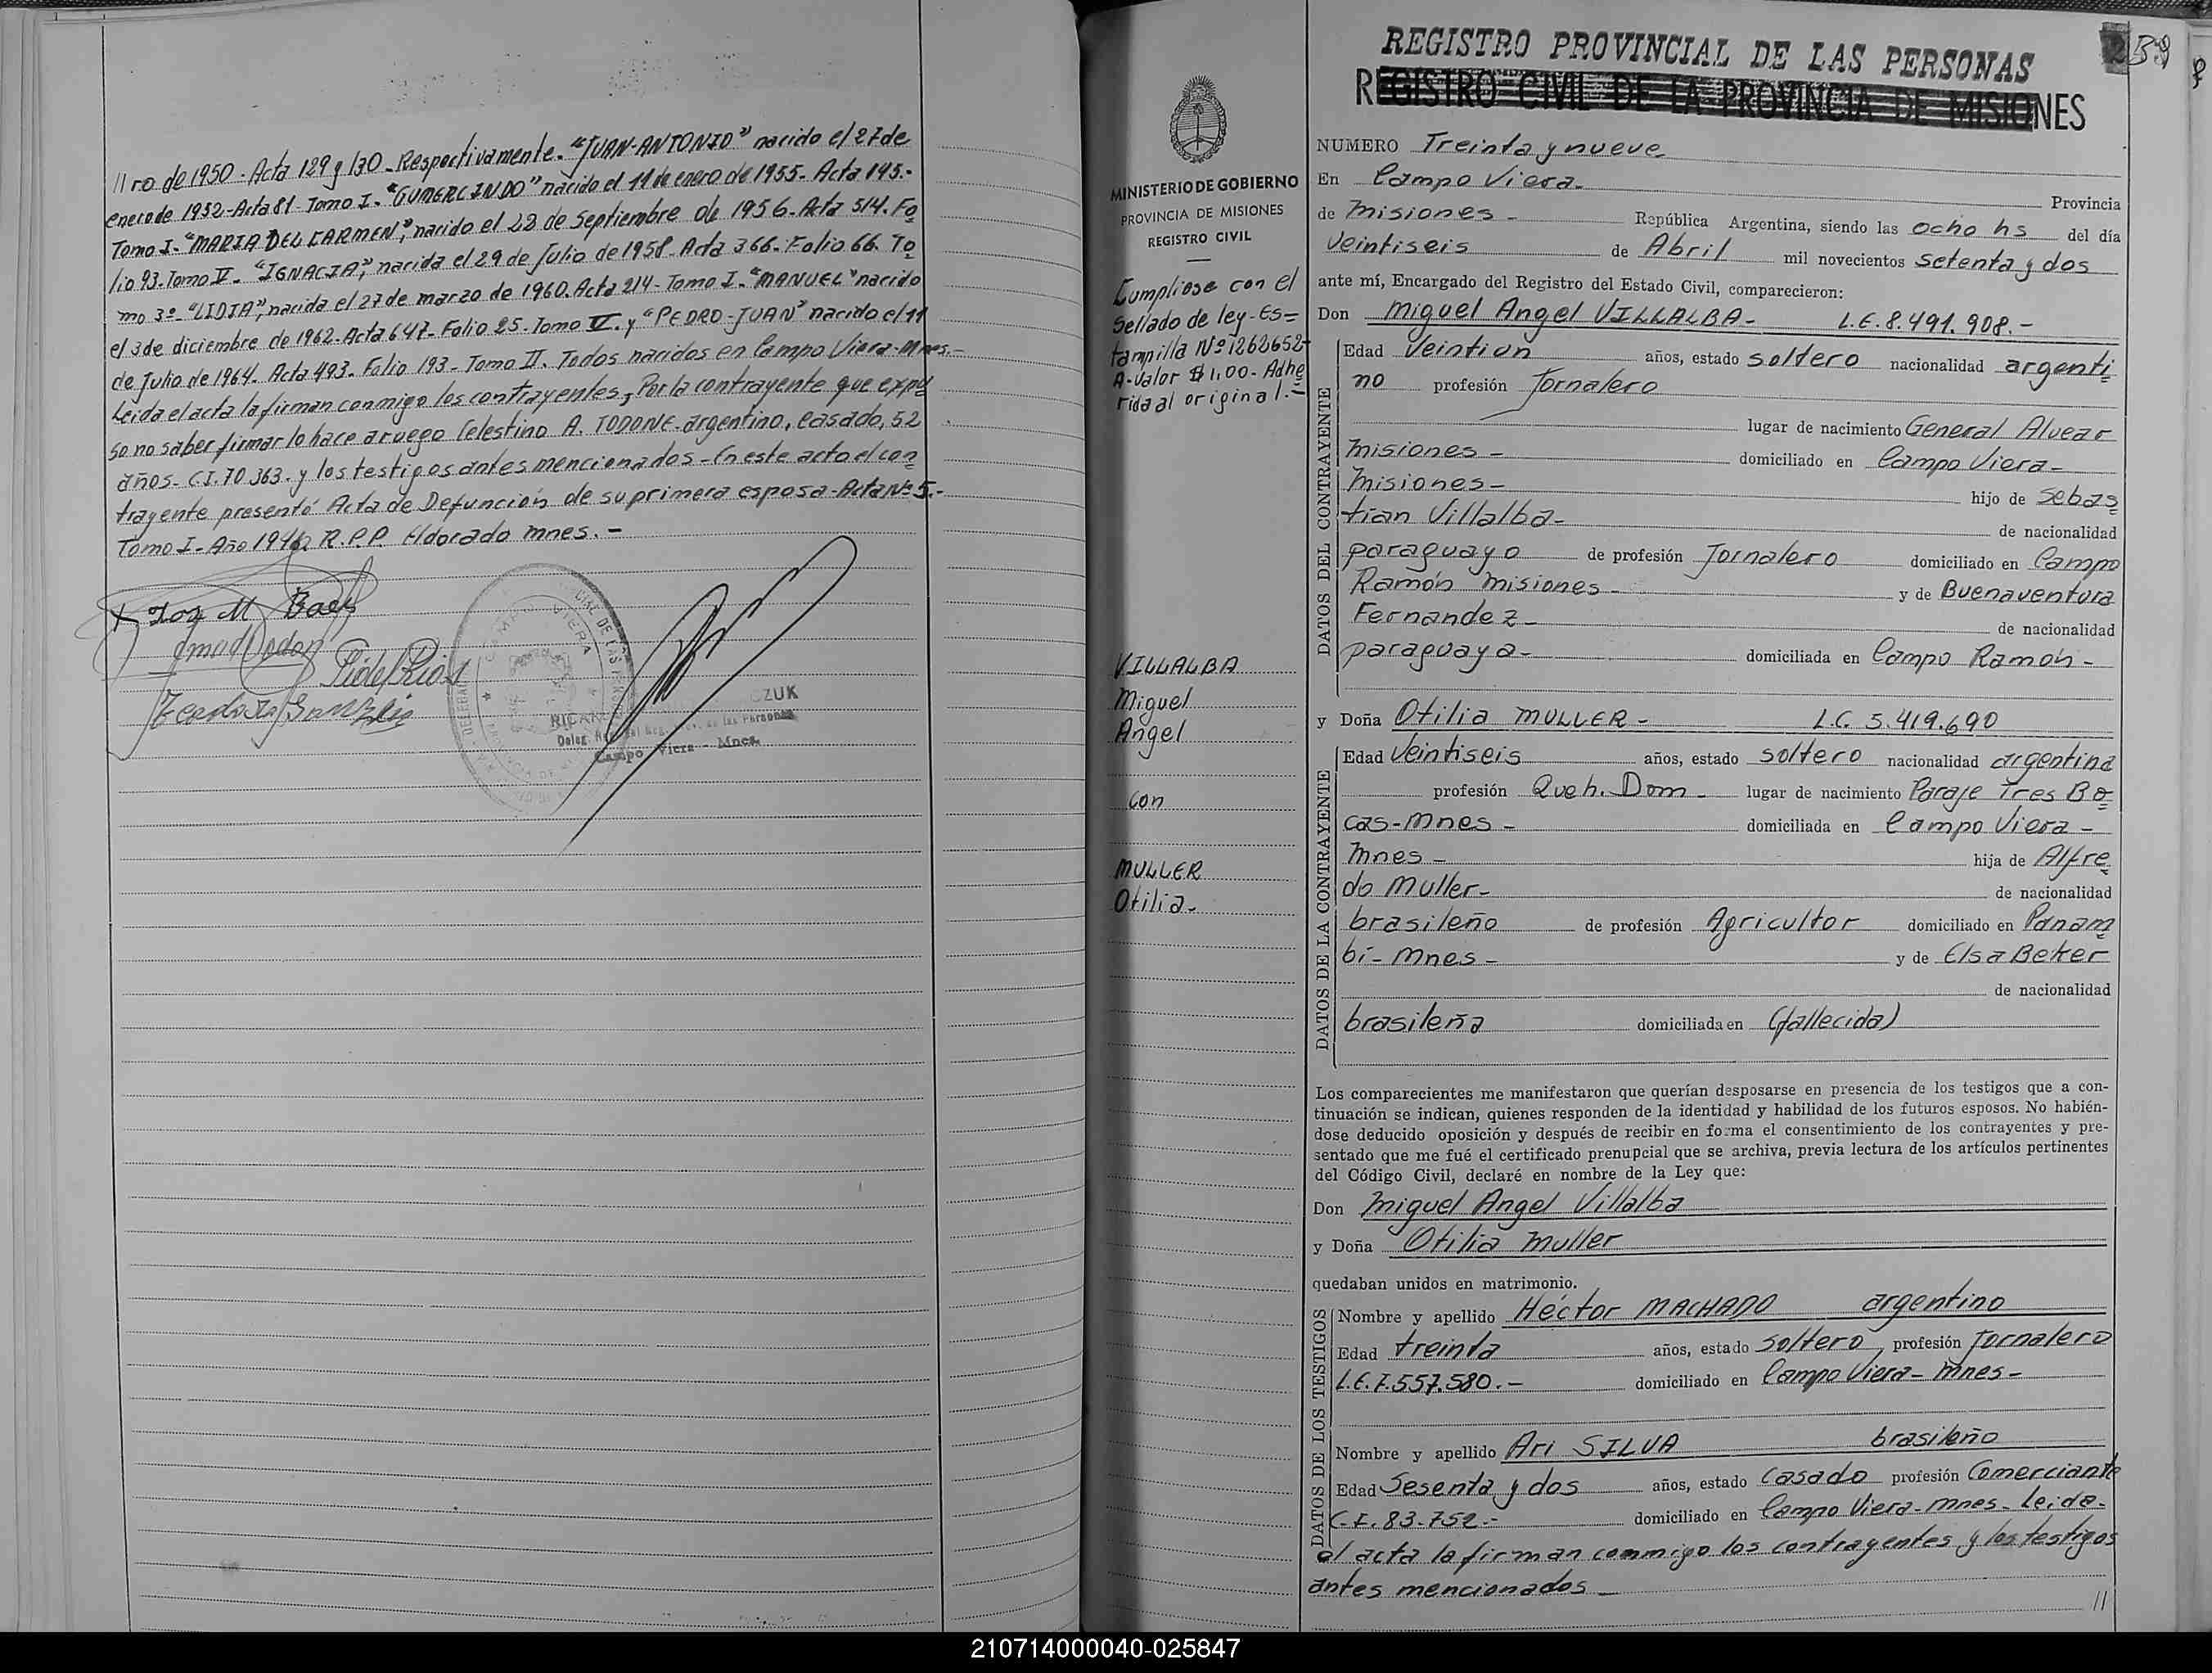 //ro de 1950 - Acta 129 y 130 - Respectivamente. "JUAN-ANTONIO" nacido el 27 de
enero de 1952 - Acta 81 - Tomo I - "GUMERCINDO" nacido el 11 de enero de 1955 - Acta 145.-
Tomo I - "MARIA DEL CARMEN", nacido el 28 de Septiembre de 1956 - Acta 514. Fo
lio 93. Tomo V - "IGNACIA", nacida el 29 de Julio de 1958 - Acta 366 - Folio 66. To
mo 3º - "LIDIA", nacida el 27 de marzo de 1960. Acta 214 - Tomo I - "MANUEL" nacido
el 3 de diciembre de 1962 - Acta 647 - Folio 25 - Tomo V. y "PEDRO-JUAN" nacido el 11
de Julio de 1964. Acta 493 - Folio 193 - Tomo II. Todos nacidos en Campo Viera - Mnes.-
Leida el acta la firman conmigo los contrayentes, Por la contrayente que expu
so no saber firmar lo hace a ruego Celestino A. TODONE - argentino, casado, 52
años - C.I. 70.363 - y los testigos antes mencionados - En este acto el con
trayente presentó Acta de Defunción de su primera esposa - Acta Nº 5.-
Tomo I - Año 1942 R.P.P. Eldorado mnes. -
CAMPO VIERA
RICAR
CZUK
Campo Viera - Mnes.
REGISTRO PROVINCIAL DE LAS PERSONAS
REGISTRO CIVIL DE LA PROVINCIA DE MISIONES
259
MINISTERIO DE GOBIERNO
PROVINCIA DE MISIONES
REGISTRO CIVIL
Cumpliose con el
Sellado de ley - Es=
tampilla Nº 1262652-
A - valor $ 1,00 - Adhe
rida al original. -
VILLALBA
Miguel
Angel
con
MULLER
Otilia -
NUMERO Treinta y nueve
En Campo Viera - Provincia
de Misiones - República Argentina, siendo las ocho hs del día
veintiseis de Abril mil novecientos setenta y dos
ante mí, Encargado del Registro del Estado Civil, comparecieron:
Don Miguel Angel VILLALBA - L.E. 8.491.908.-
DATOS DEL CONTRAYENTE
Edad Veintiun años, estado soltero nacionalidad argenti
no profesión Jornalero
lugar de nacimiento General Alvear
misiones - domiciliado en Campo Viera -
misiones - hijo de Sebas
tian Villalba - de nacionalidad
paraguayo de profesión Jornalero domiciliado en Campo
Ramón misiones - y de Buenaventura
Fernandez - de nacionalidad
paraguaya - domiciliada en Campo Ramón -
y Doña Otilia MULLER - L.C. 5.419.690
DATOS DE LA CONTRAYENTE
Edad Veintiseis años, estado soltero nacionalidad argentina
profesión Queh. Dom - lugar de nacimiento Paraje Tres Bo
cas - Mnes - domiciliada en Campo Viera -
Mnes - hija de Alfre
do Muller - de nacionalidad
brasileño de profesión Agricultor domiciliado en Panam
bí - Mnes - y de Elsa Beker
de nacionalidad
brasileña domiciliada en (fallecida)
Los comparecientes me manifestaron que querían desposarse en presencia de los testigos que a con-
tinuación se indican, quienes responden de la identidad y habilidad de los futuros esposos. No habién-
dose deducido oposición y después de recibir en forma el consentimiento de los contrayentes y pre-
sentado que me fué el certificado prenupcial que se archiva, previa lectura de los artículos pertinentes
del Código Civil, declaré en nombre de la Ley que:
Don Miguel Angel Villalba
y Doña Otilia Muller
quedaban unidos en matrimonio.
DATOS DE LOS TESTIGOS
Nombre y apellido Héctor MACHADO argentino
Edad treinta años, estado soltero profesión Jornalero
L.E. 7.557.580. - domiciliado en Campo Viera - Mnes -
Nombre y apellido Ari SILVA brasileño
Edad Sesenta y dos años, estado Casado profesión Comerciante
C.I. 83.752.- domiciliado en Campo Viera - Mnes - Leida -
el acta la firman conmigo los contrayentes y los testigos
antes mencionados -
//
210714000040-025847